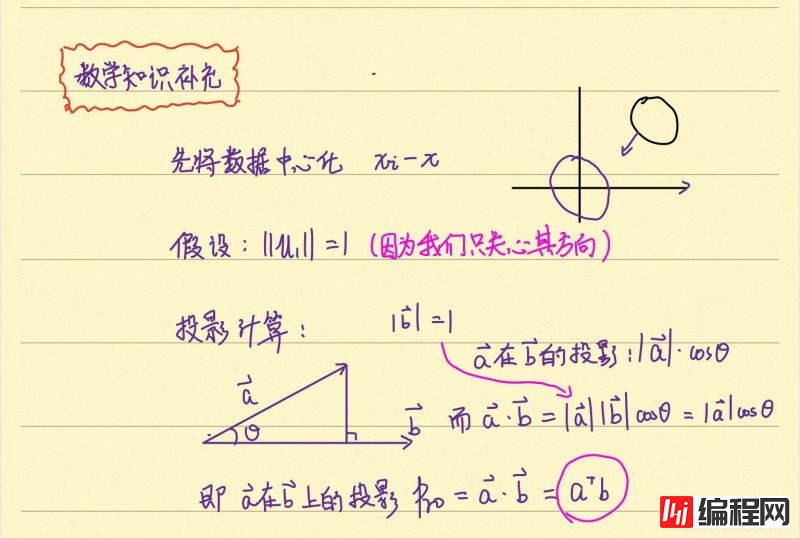 数学知识补充
先将数据中心化 xᵢ-x
假设：||u₁||=1 (因为我们只关心其方向)
投影计算：
|b⃗|=1
a⃗在b⃗的投影：|a⃗|·cosθ
a⃗
θ
b⃗
而 a⃗·b⃗=|a⃗||b⃗|cosθ=|a⃗|cosθ
即 a⃗在b⃗上的投影 pro = a⃗·b⃗ = aᵀb
编程网